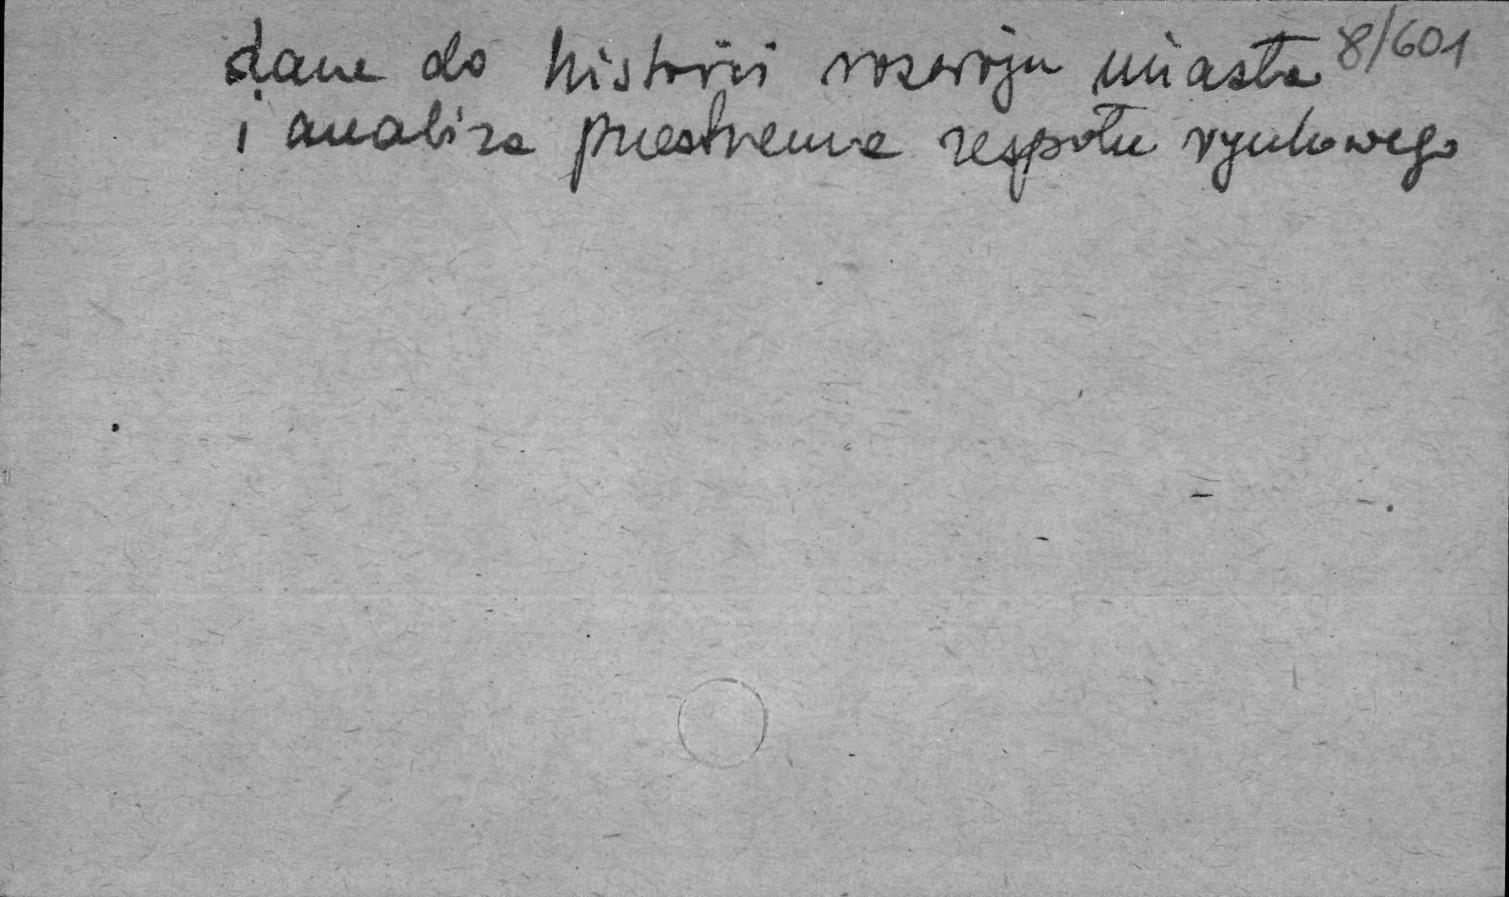 dane do historii rozwoju miasta 8/601
i analiza przestrzenna zespołu rynkowego